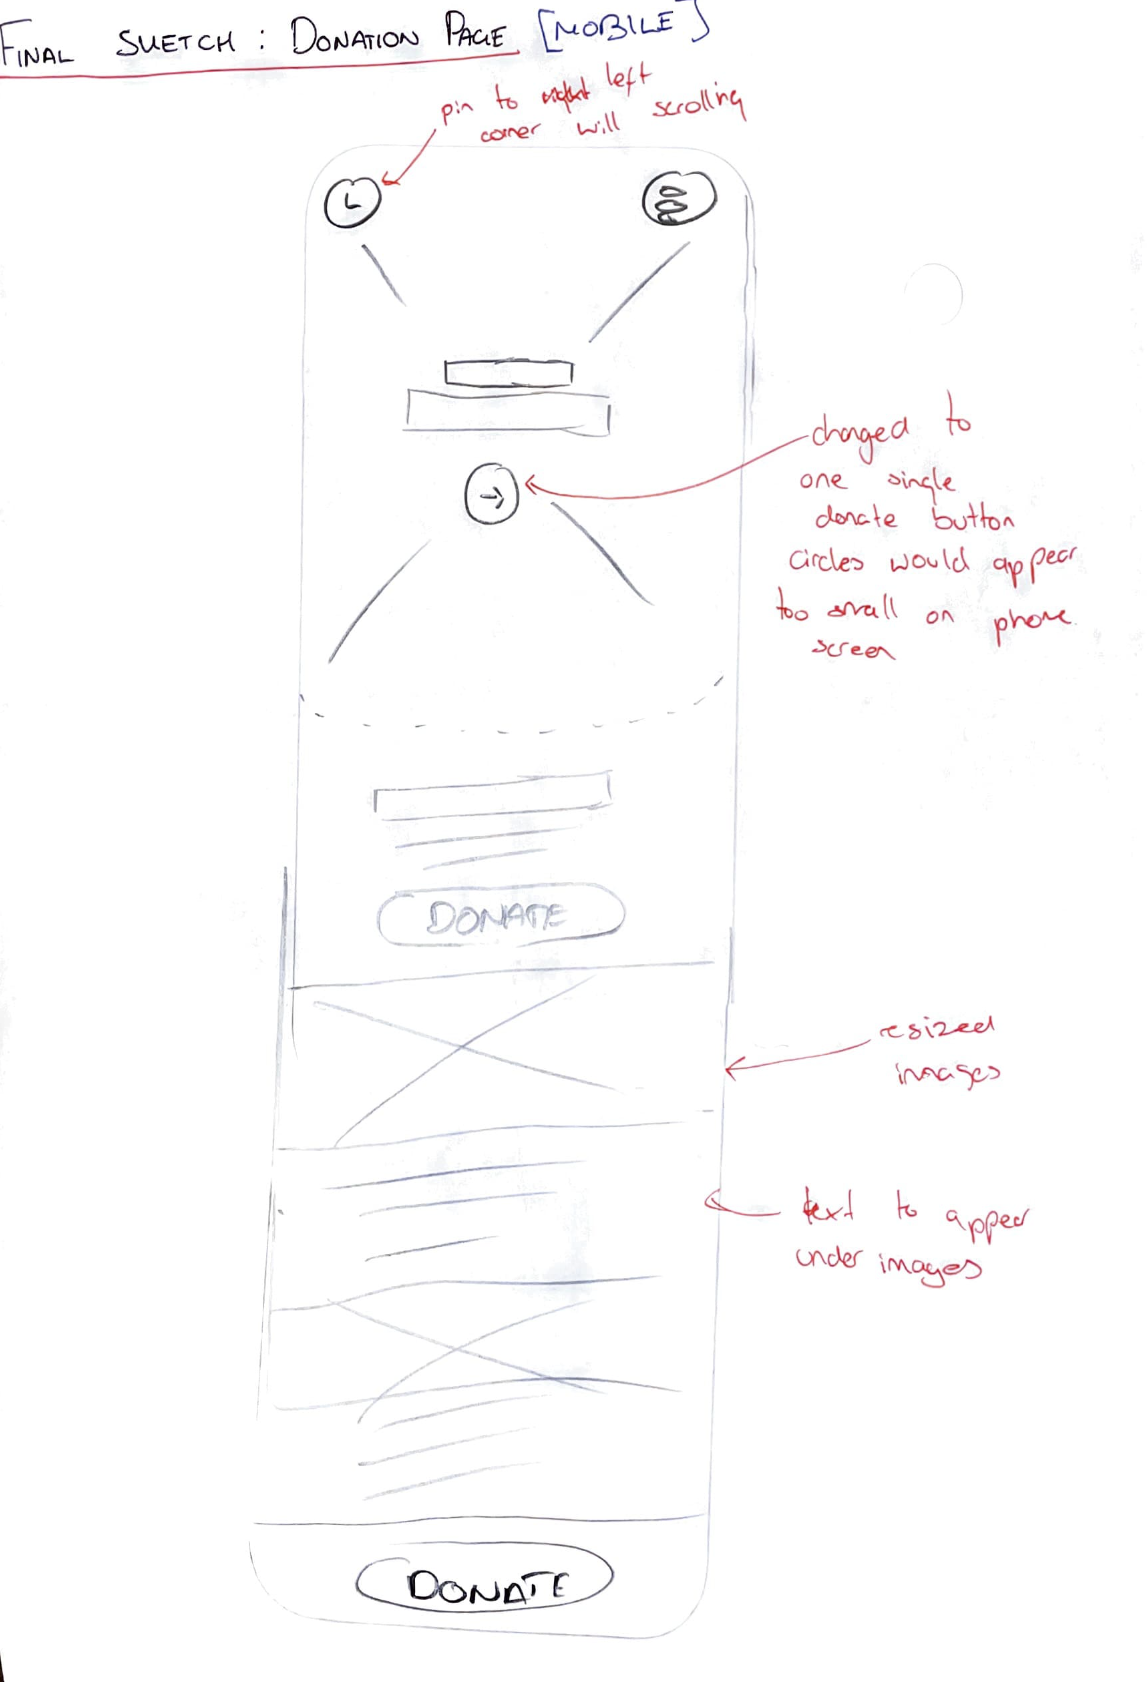 FINAL SKETCH : DONATION PAGE [MOBILE]
pin to right left
corner will scrolling
L
changed to
one single
donate button
circles would appear
too small on phone
screen
DONATE
resized
images
text to appear
under images
DONATE